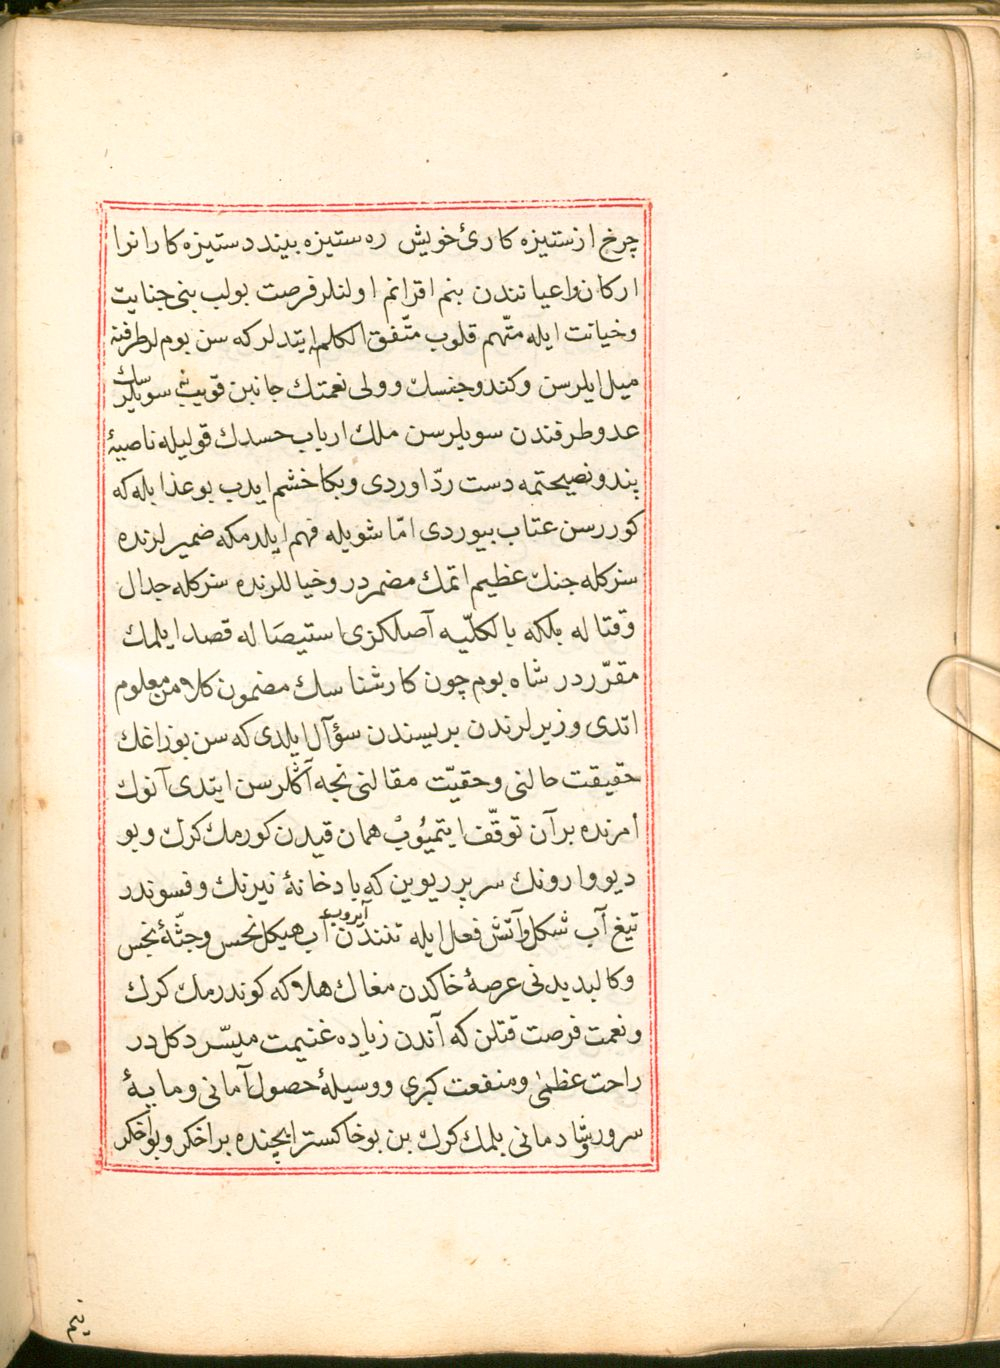 چرخ از ستیزه کاریٔ خویش ره ستیزه بیند ستیزه کارانرا
ارکان واعیانندن بنم اقرانم اولنلر فرصت بولب بنی جنایت
وخیانت ایله متّهم قلوب متّفق الکلم ایتدلر که سن بوم لر طرفنه
میل ایلرسن وکندو جنسک وولی نعمتک جانبن قویب سویلرسک
عدو طرفندن سویلرسن ملک ارباب حسدک قولیله ناصیهٔ
پند ونصیحتمه دست ردّ اوردی وبکا خشم ایدب بو عذابله که
کوررسن عتاب بیوردی امّا شویله فهم ایلدمکه ضمیرلرنده
سزکله جنک عظیم اتمک مضمردر وخیاللرنده سزکله جدال
وقتاله بلکه بالکلّیه آصلکزی استیصاله قصد ایلمک
مقرّردر شاه بوم چون کارشناسک مضمون کلامن معلوم
اتدی وزیرلرندن بریسندن سؤآل ایلدی که سن بو زاغک
حقیقت حالنی وحقیّت مقالنی نجه آڭلرسن ایتدی آنوک
امرنده بر آن توقّف ایتمیوب همان قیدن کورمک کرک وبو
دیو وارونک سر پر ریوین که بادخانهٔ نیرنک وفسوندر
تیغ آب شکل وآتش فعل ایله تنندن آیروب آب هیکل نحس وجثّهٔ نجس
وکالبدیدنی عرصهٔ خاکدن مغاک هلاکه کوندرمک کرک
ونعمت فرصت قتلن که آندن زیاده غنیمت میسّر دکلدر
راحت عظمی ومنفعت کبری ووسیلهٔ حصول آمانی ومایهٔ
سرور وشادمانی بلمک کرک بن بو خاکستر ایچنده بر اخکر وبو اخکر